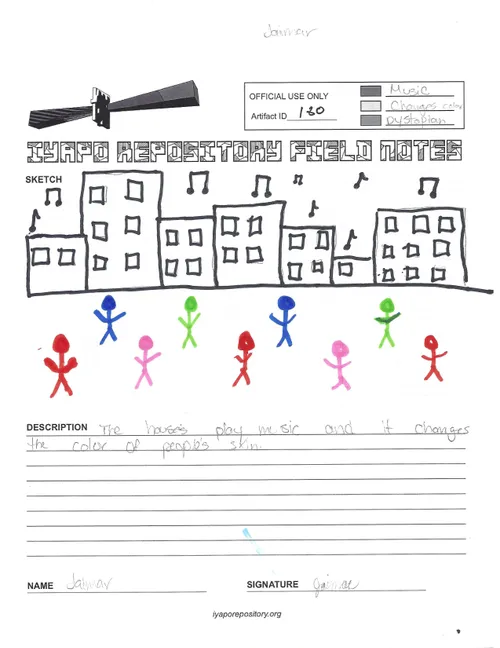 Jaimar
OFFICIAL USE ONLY
Artifact ID 180
Music
Changes color
Dystopian
IYAPO REPOSITORY FIELD NOTES
SKETCH
DESCRIPTION The houses play music and it changes
the color of people's skin.
NAME Jaimar
SIGNATURE Jaimar
iyaporepository.org